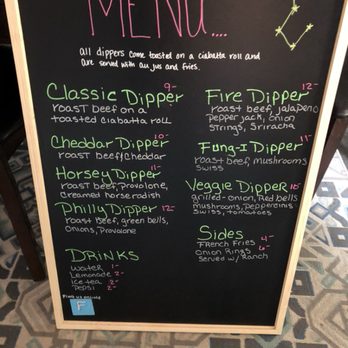 MENU....
all dippers come toasted on a ciabatta roll and
are served with au jus and fries.
Classic Dipper 9-
roast beef on a
toasted ciabatta roll
Cheddar Dipper 10-
roast beef/cheddar
Horsey Dipper 11-
roast beef, Provolone,
creamed horseradish
Philly Dipper 12-
roast beef, green bells,
Onions, Provolone
DRINKS
Water 1-
Lemonade 2-
ice tea 2-
Pepsi 2-
Fire Dipper 12-
roast beef, jalapeno
pepper jack, onion
strings, Sriracha
Fung-I Dipper 11-
roast beef, mushrooms
Swiss
Veggie Dipper 10-
grilled-onion, Red bells
mushrooms, Pepperinis
Swiss, tomatoes
Sides
French Fries 4-
Onion Rings 6-
Served w/ Ranch